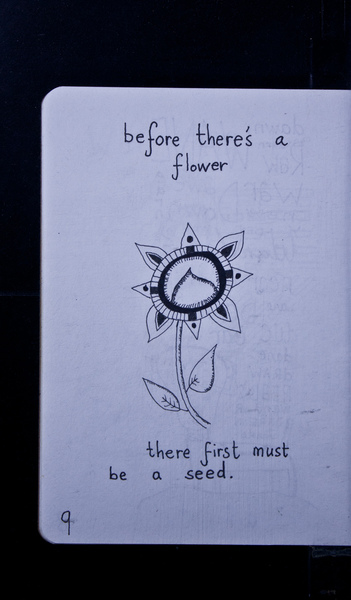 before there's a
flower
there first must
be a seed.
9